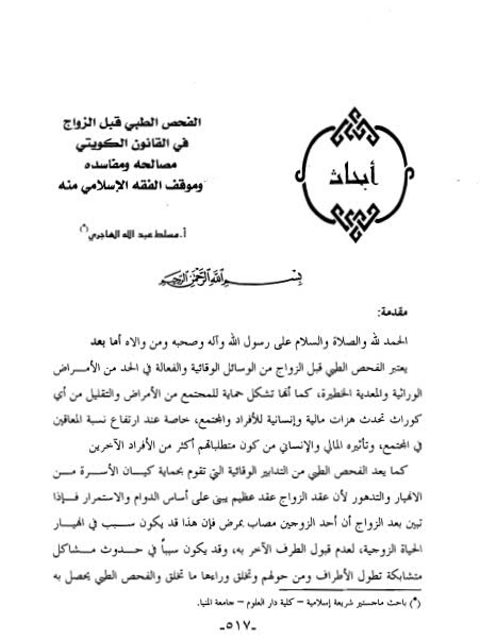 أبحاث
الفحص الطبي قبل الزواج
في القانون الكويتي
مصالحه ومفاسده
وموقف الفقه الإسلامي منه
أ. مسلط عبد الله الهاجري (*)
بسم الله الرحمن الرحيم
مقدمة:
الحمد لله والصلاة والسلام على رسول الله وآله وصحبه ومن والاه أما بعد
يعتبر الفحص الطبي قبل الزواج من الوسائل الوقائية والفعالة في الحد من الأمراض
الوراثية والمعدية الخطيرة، كما أنها تشكل حماية للمجتمع من الأمراض والتقليل من أي
كوراث تحدث هزات مالية وإنسانية للأفراد والمجتمع، خاصة عند ارتفاع نسبة المعاقين
في المجتمع، وتأثيره المالي والإنساني من كون متطلباتهم أكثر من الأفراد الآخرين
كما يعد الفحص الطبي من التدابير الوقائية التي تقوم بحماية كيان الأسرة من
الانهيار والتدهور لأن عقد الزواج عقد عظيم يبنى على أساس الدوام والاستمرار فإذا
تبين بعد الزواج أن أحد الزوجين مصاب بمرض فإن هذا قد يكون سبب في انهيار
الحياة الزوجية، لعدم قبول الطرف الآخر به، وقد يكون سبباً في حدوث مشاكل
متشابكة تطول الأطراف ومن حولهم وتخلق وراءها ما تخلق والفحص الطبي يحصل به
(*) باحث ماجستير شريعة إسلامية – كلية دار العلوم – جامعة المنيا.
-٥١٧-